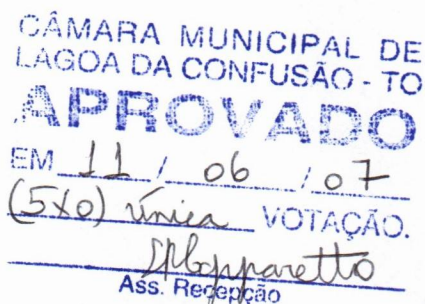 CÂMARA MUNICIPAL DE
LAGOA DA CONFUSÃO - TO
APROVADO
EM 11 / 06 / 07
(5x0) única VOTAÇÃO.
Ass. Recepção